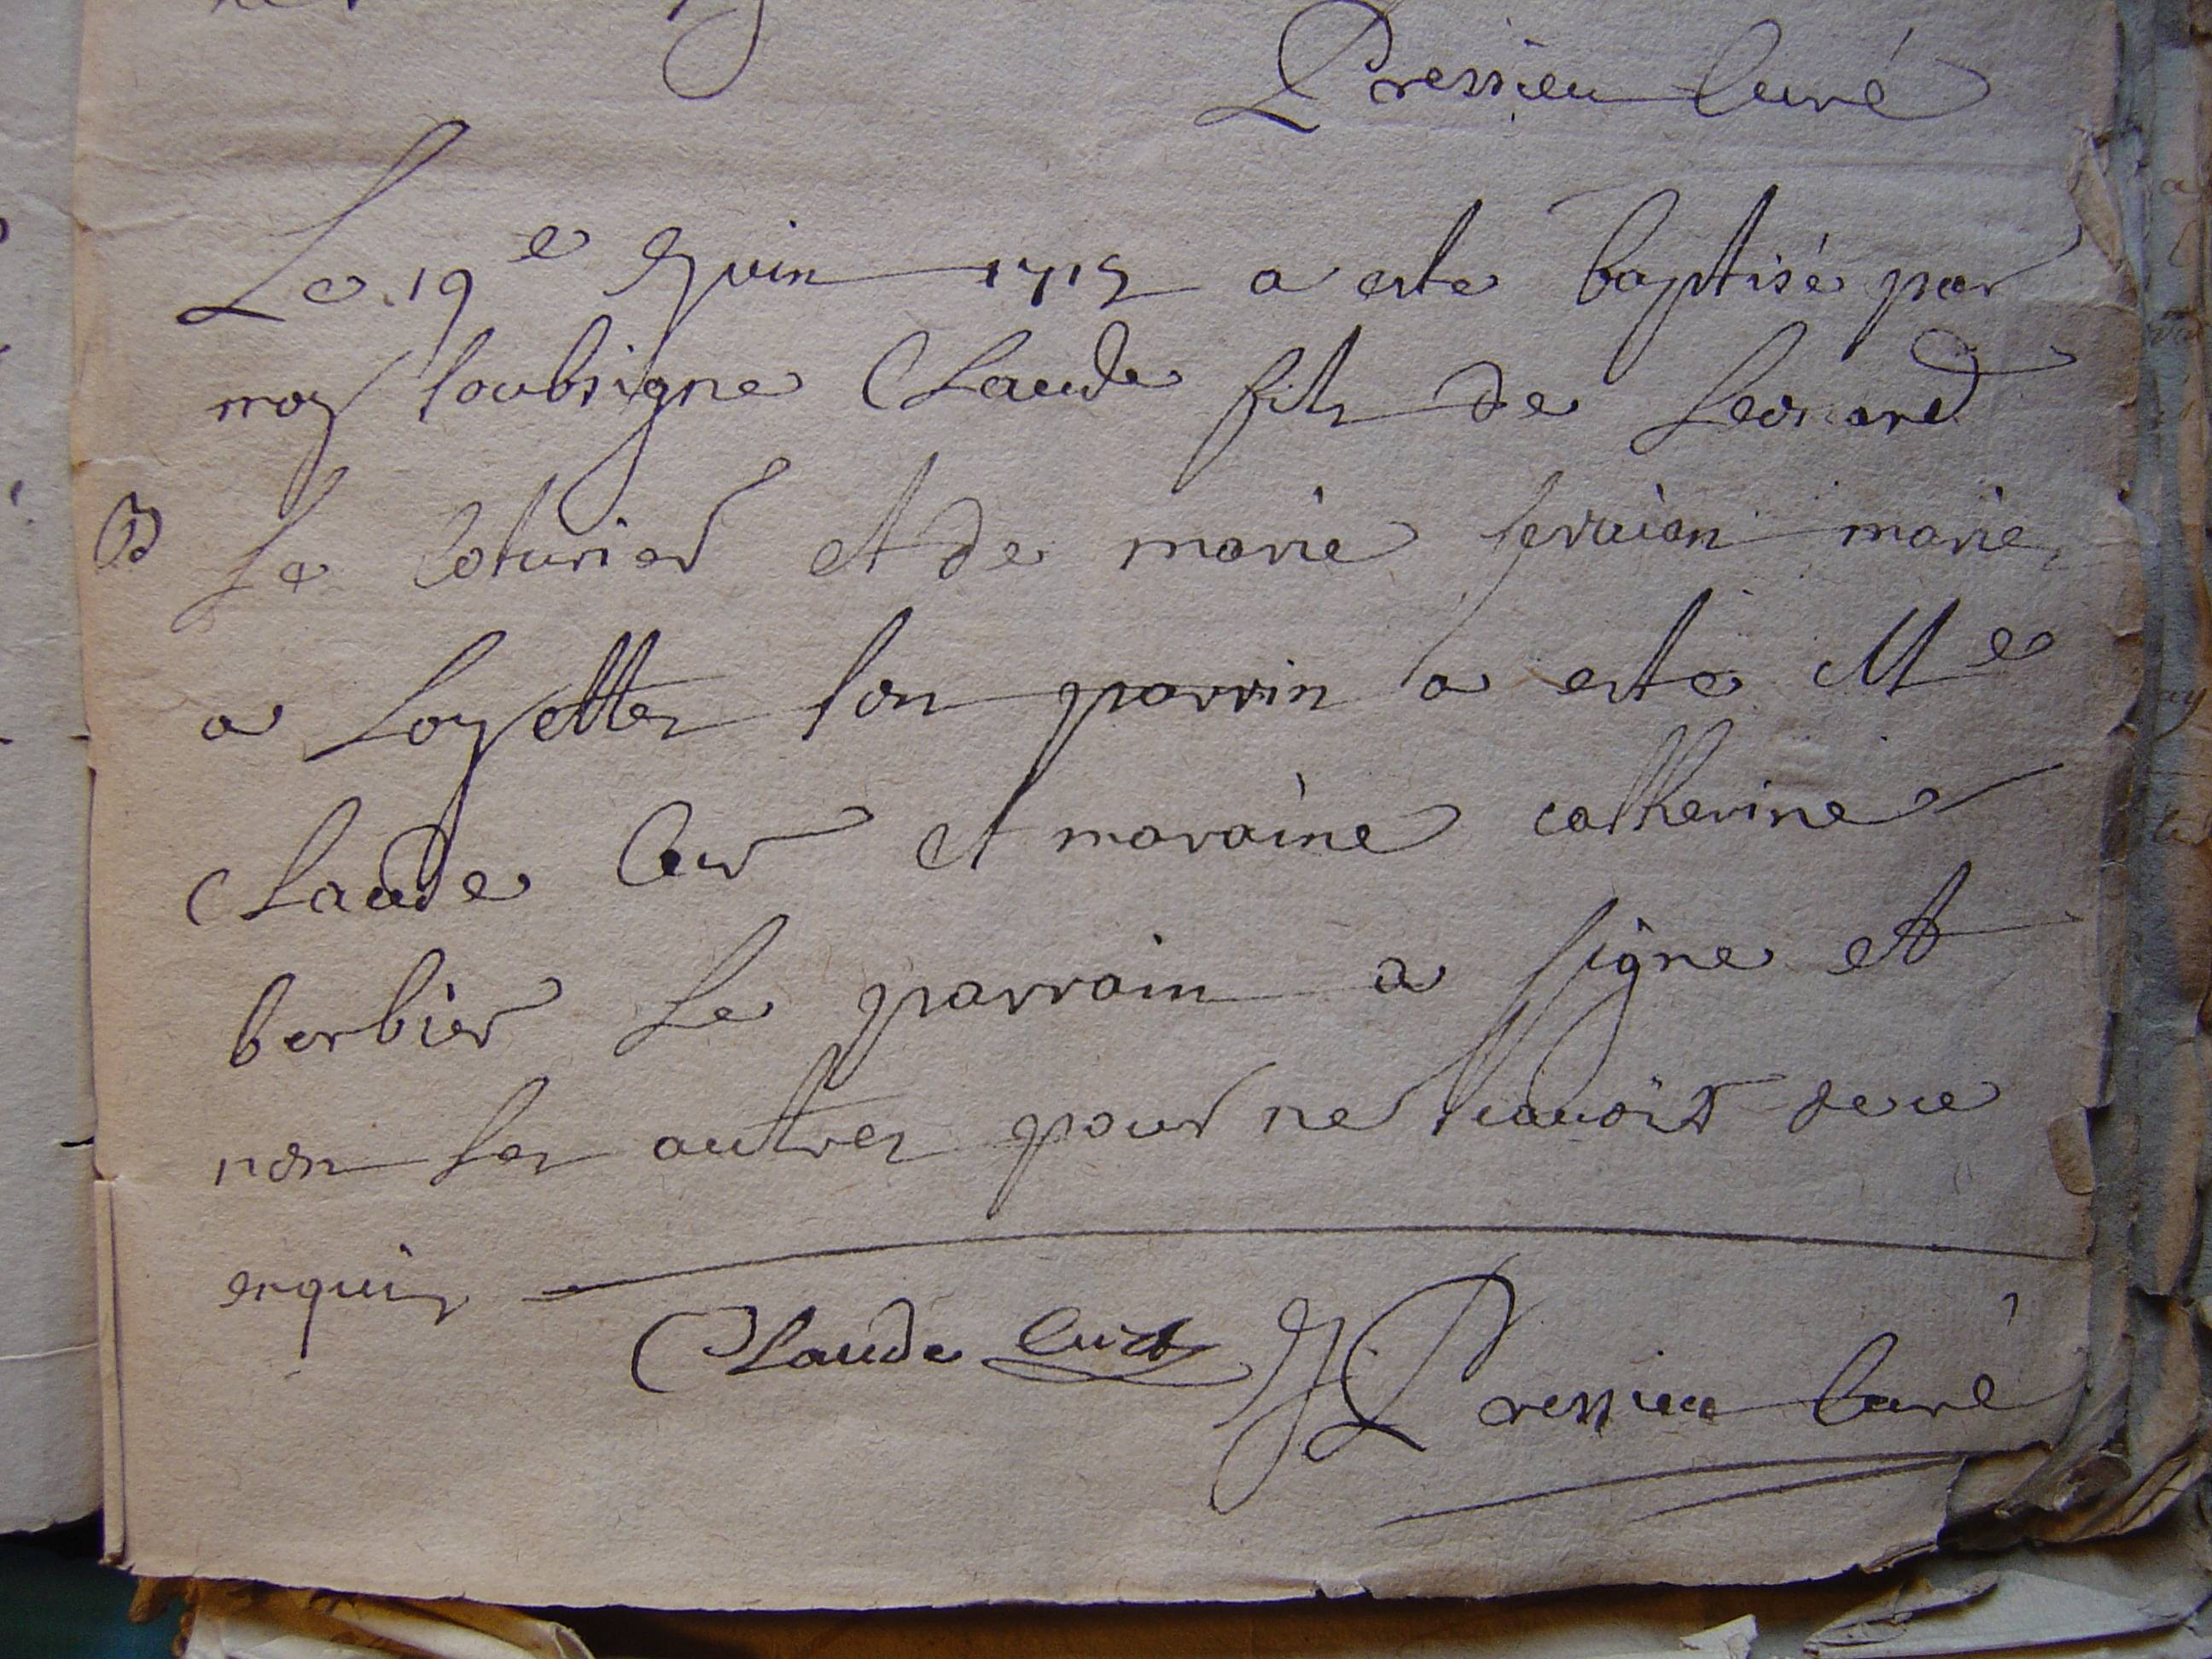 Pressieu Curé
Le 19e Juin 1715 a este baptisé par
moy soubsigne Claude fils de Leonard
B Le Coturier et de marie marie
a Loyettes son parrin a este Me
Claude et maraine catherine
berbier Le parrain a signe et
non les autres pour ne scavoir de ce
enquis
Claude J Pressieu Curé